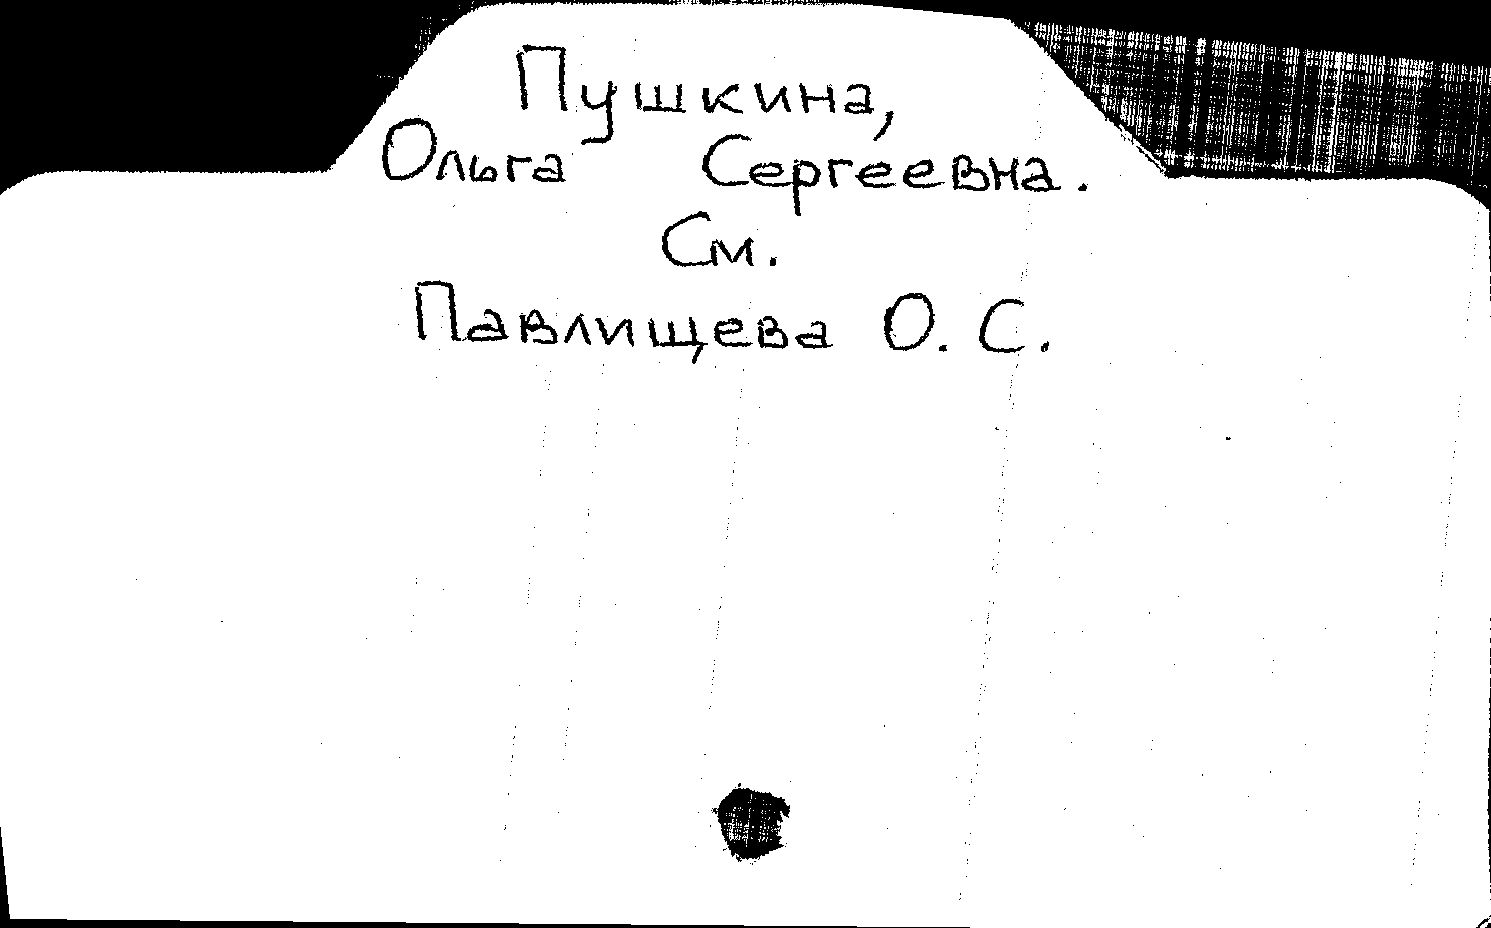 Пушкина,
Ольга Сергеевна.
См.
Павлищева О. С.